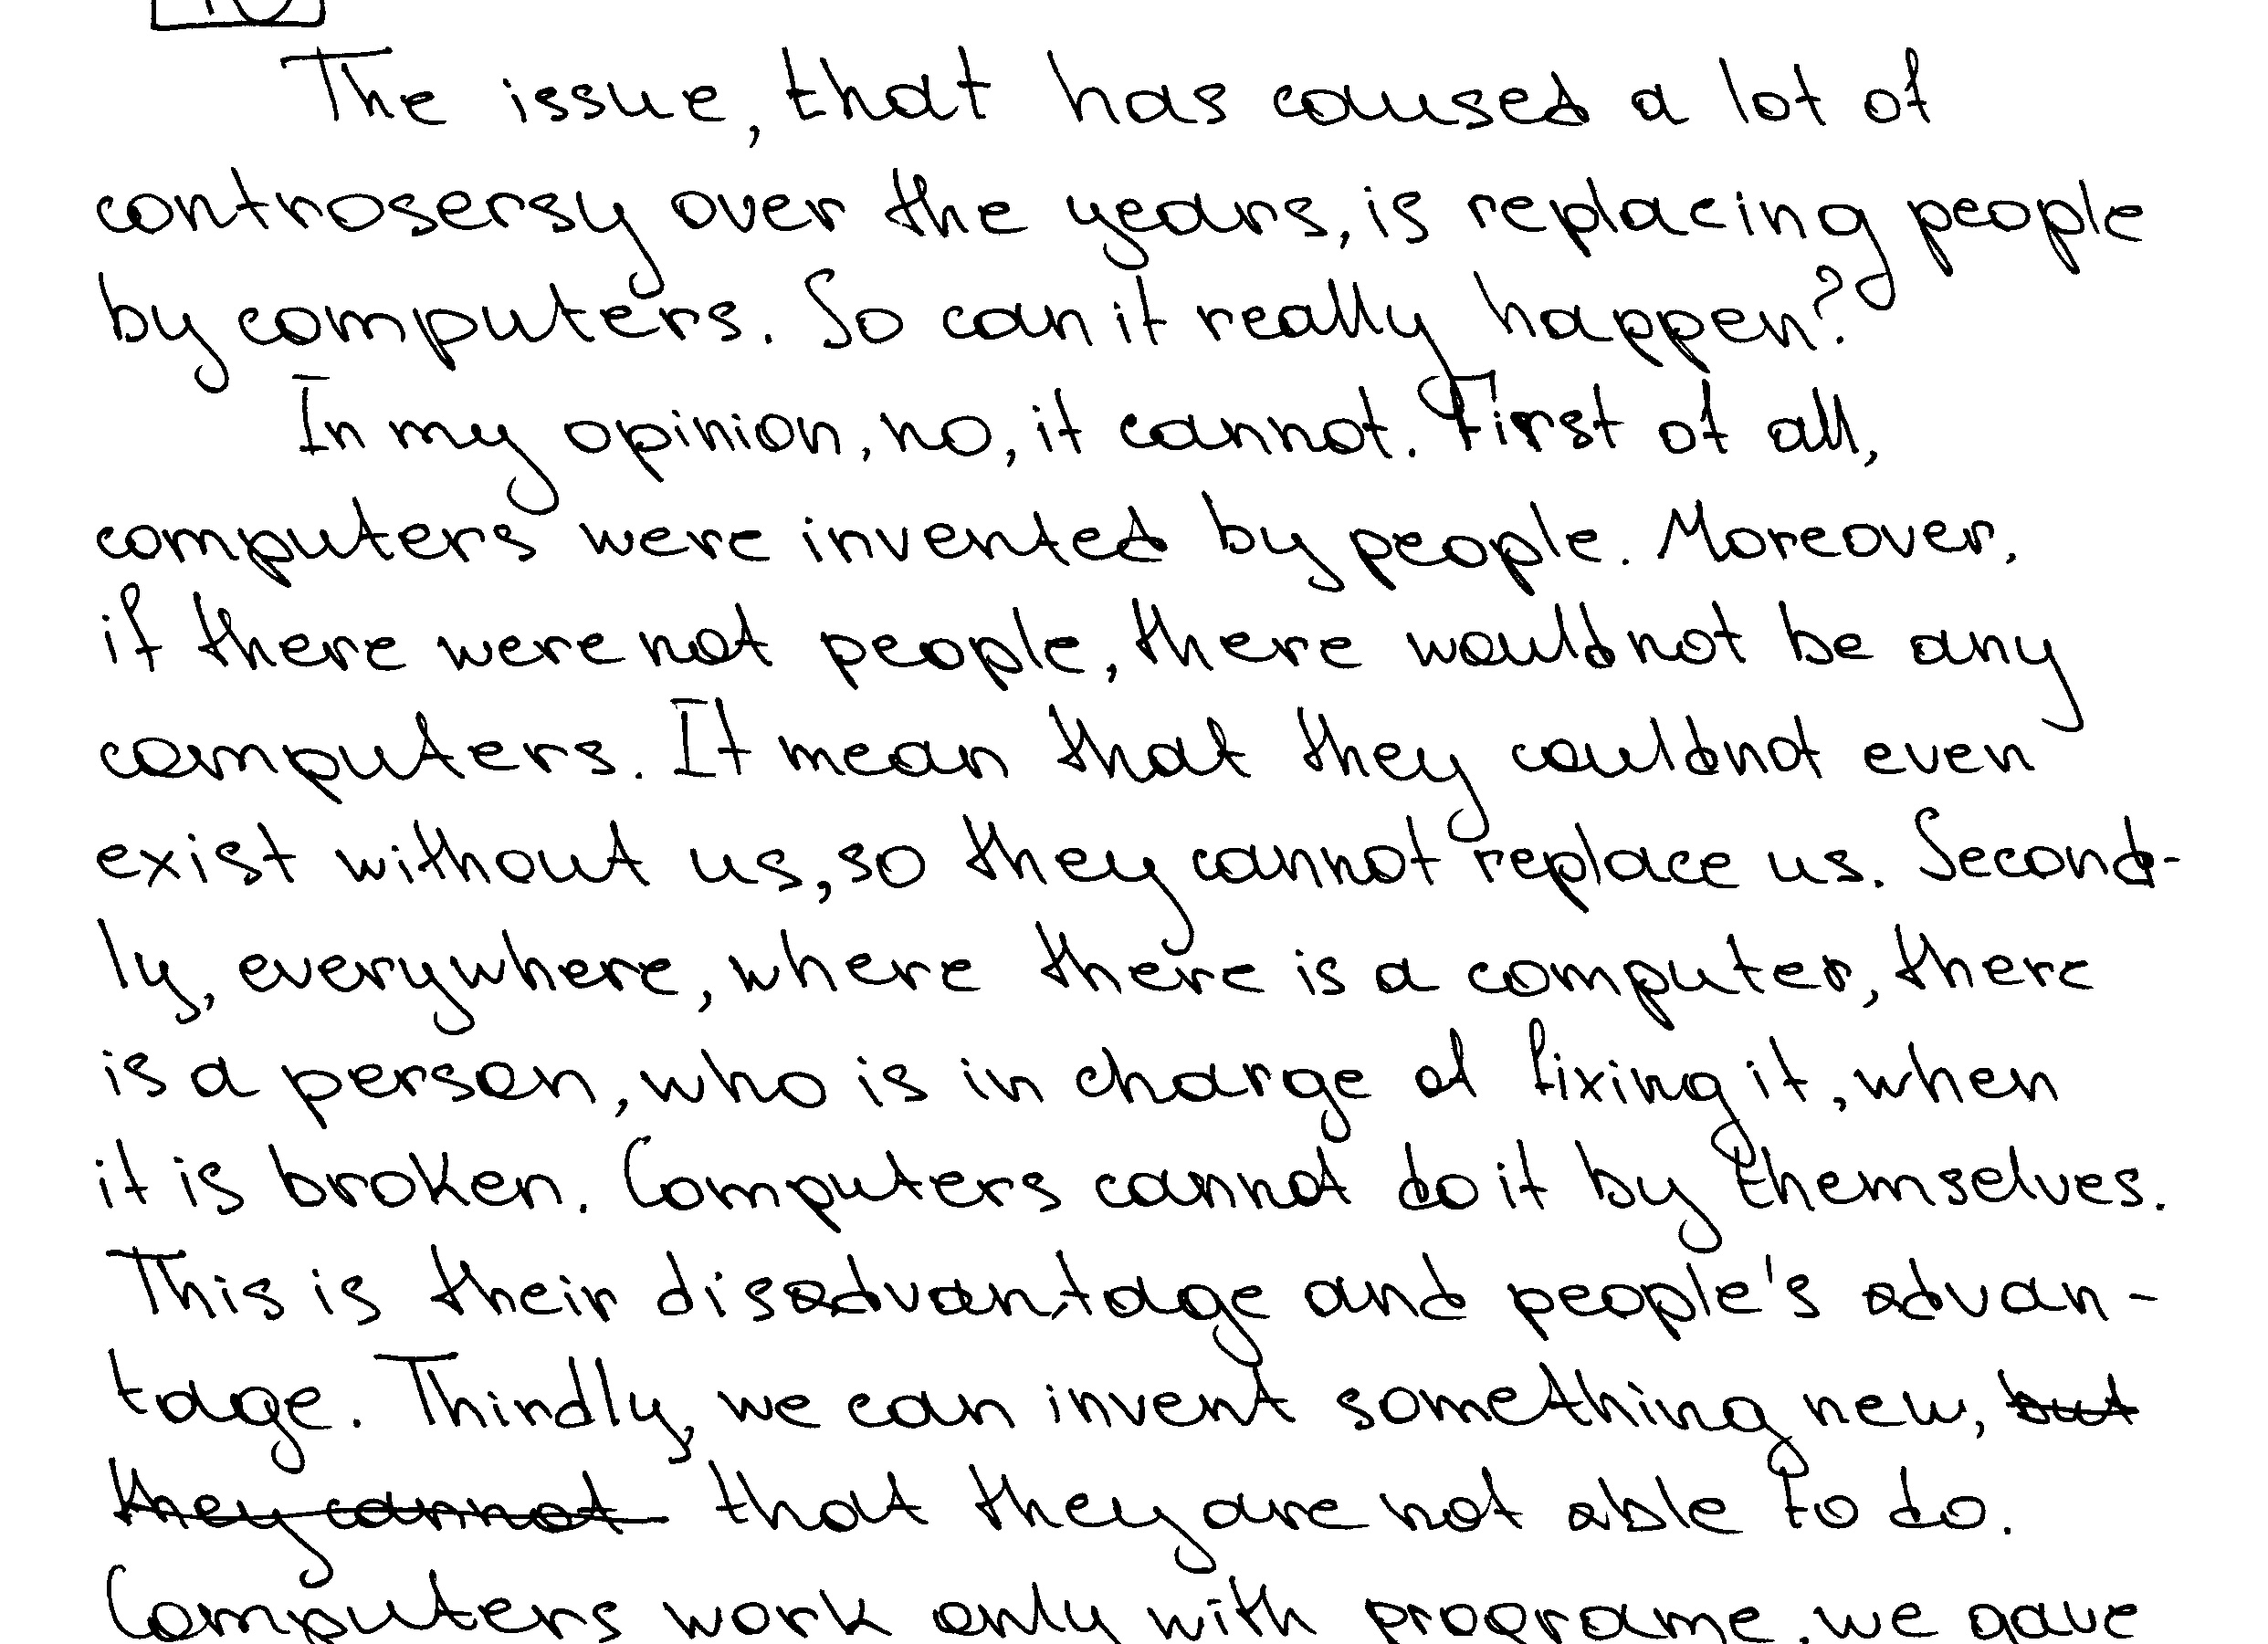 The issue, that has caused a lot of
controsersy over the years, is replacing people
by computers. So can it really happen?
In my opinion, no, it cannot. First of all,
computers were invented by people. Moreover,
if there were not people, there would not be any
computers. It mean that they could not even
exist without us, so they cannot replace us. Second-
ly, everywhere, where there is a computer, there
is a person, who is in charge of fixing it, when
it is broken. Computers cannot do it by themselves.
This is their disadvantage and people's advan-
tage. Thirdly, we can invent something new, but
they cannot that they are not able to do.
Computers work only with programe, we gave